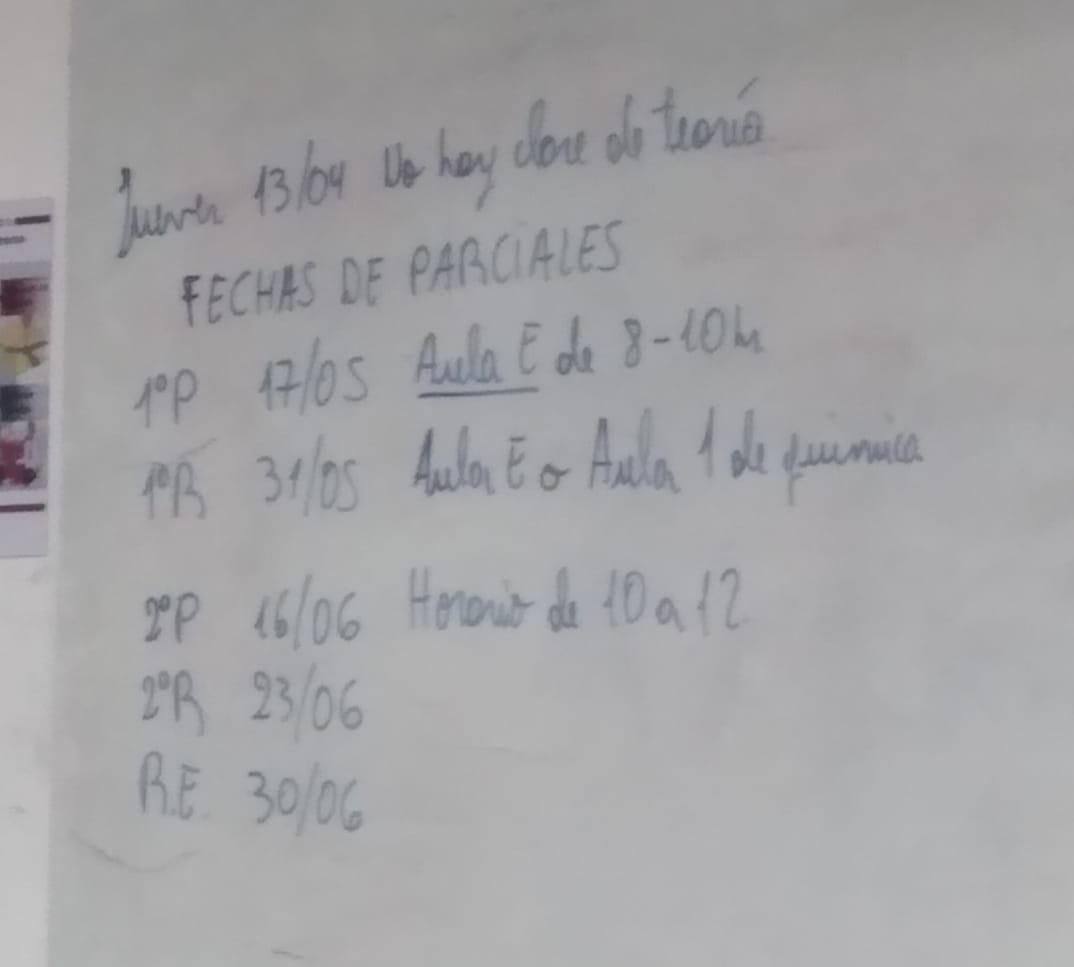 Jueves 13/04 No hay clase de teoría
FECHAS DE PARCIALES
1ºP 17/05 Aula E de 8-10h
1ºR 31/05 Aula E o Aula 1 de química
2ºP 16/06 Horario de 10 a 12
2ºR 23/06
R.E. 30/06